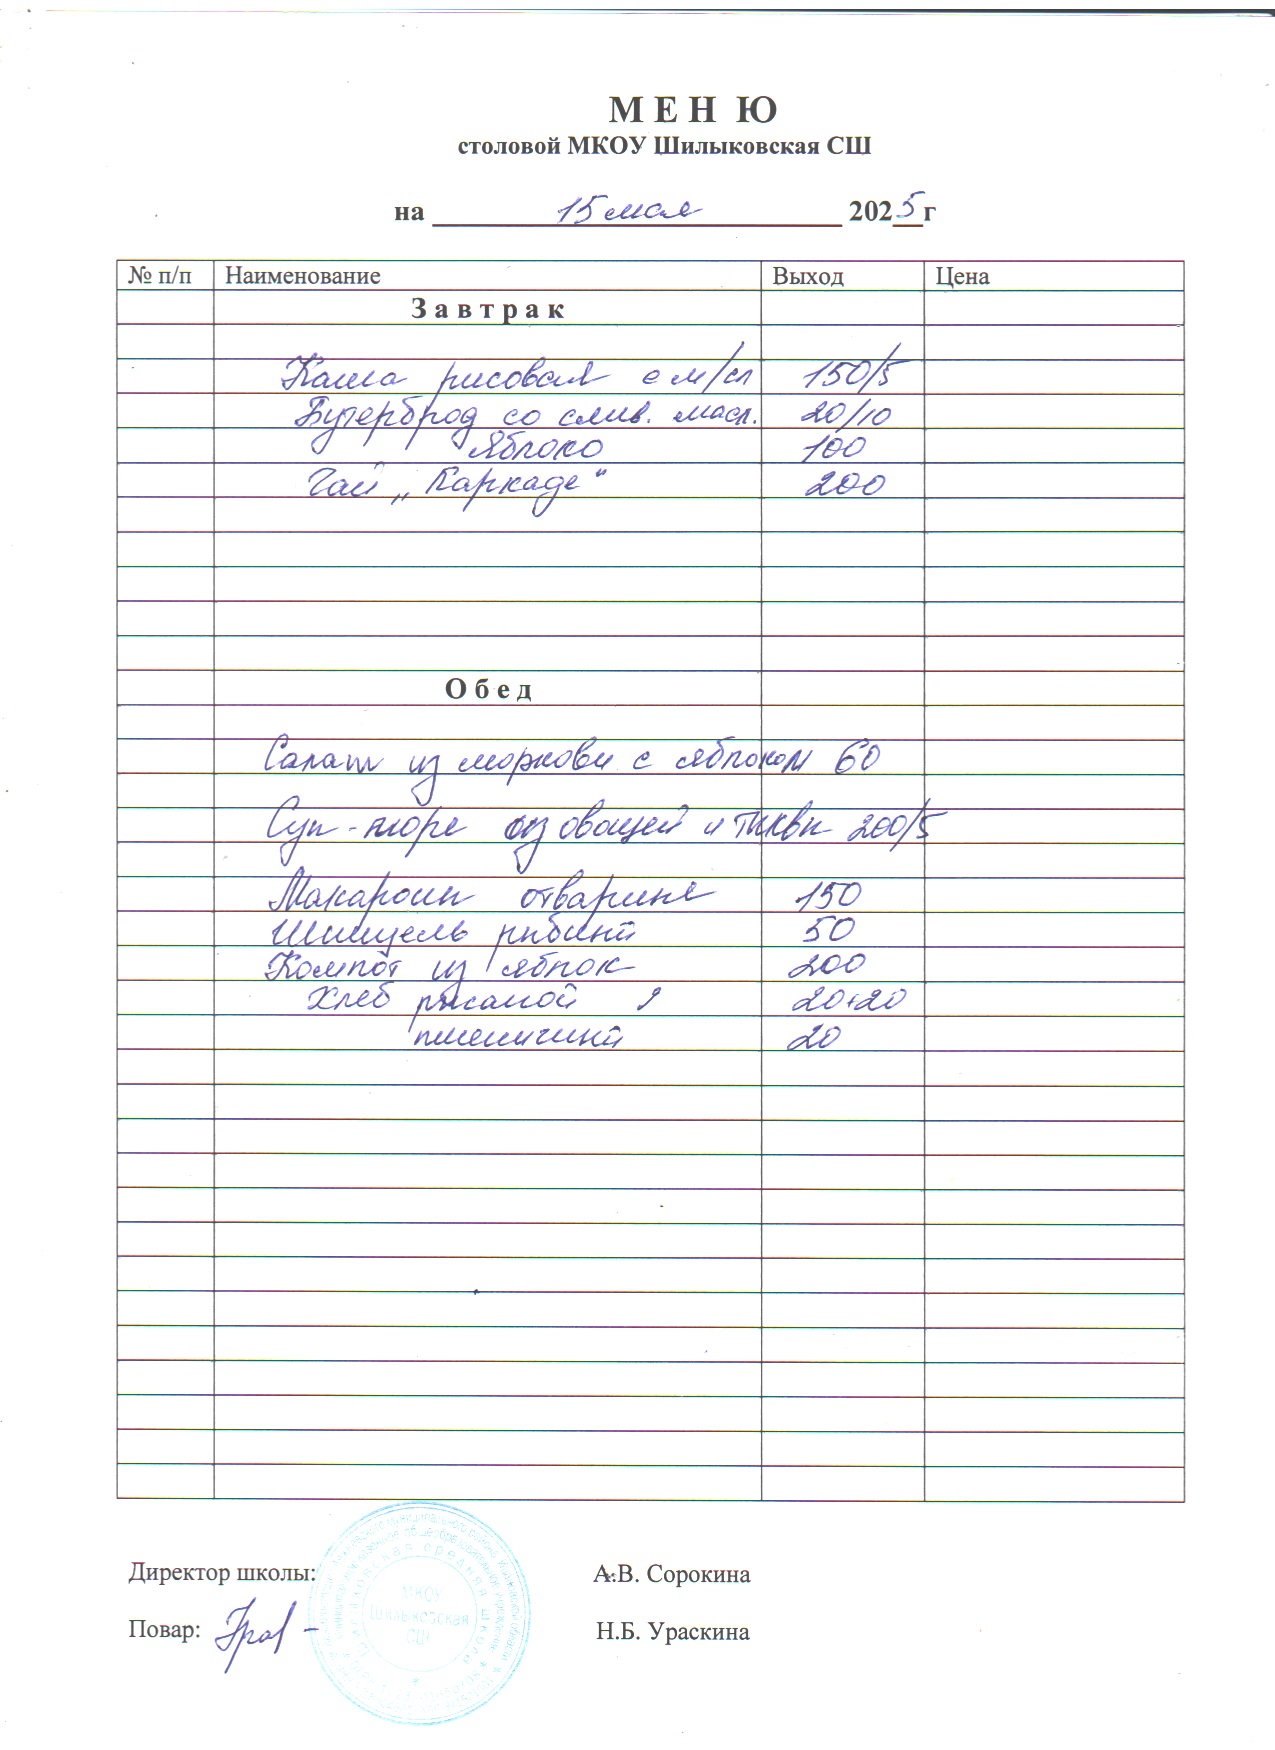 М Е Н Ю
столовой МКОУ Шилыковская СШ
на 15 мая 2025г
№ п/п Наименование Выход Цена
З а в т р а к
Каша рисовая с м/сл 150/5
Бутерброд со слив. масл. 20/10
Яблоко 100
Чай „Каркаде“ 200
О б е д
Салат из моркови с яблоком 60
Суп-пюре из овощей и тыквы 200/5
Макароны отварные 150
Шницель рыбный 50
Компот из яблок 200
Хлеб ржаной 20+20
пшеничный 20
Директор школы: А.В. Сорокина
Повар: Н.Б. Ураскина
МКОУ
Шилыковская
СШ